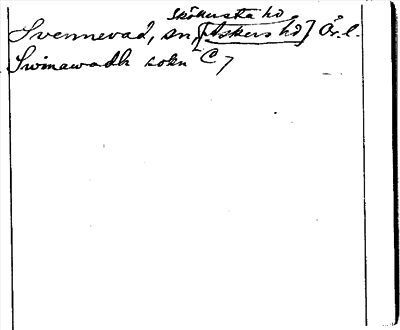 Sköllersta hd
Svennevad, sn [Askers hd] Ör. l.
Swinawadh sokn C 7